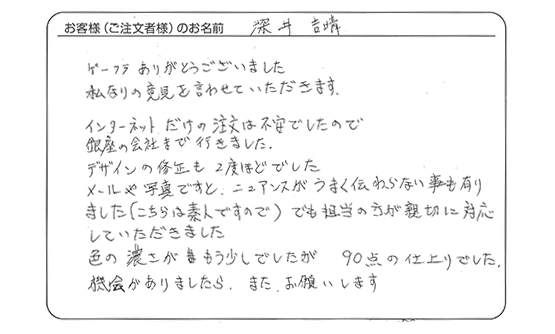 お客様(ご注文者様)のお名前 深井 吉晴
ゲーフラ ありがとうございました
私なりの意見を言わせていただきます.
インターネット だけの注文は不安でしたので
銀座の会社まで行きました.
デザインの修正も 2度ほどでした
メールや写真ですと、ニュアンスがうまく伝わらない事も有り
ました(こちらは素人ですので) でも担当の方が親切に対応
していただきました
色の 濃さが もう少しでしたが 90点の仕上りでした.
機会がありましたら、また、お願いします